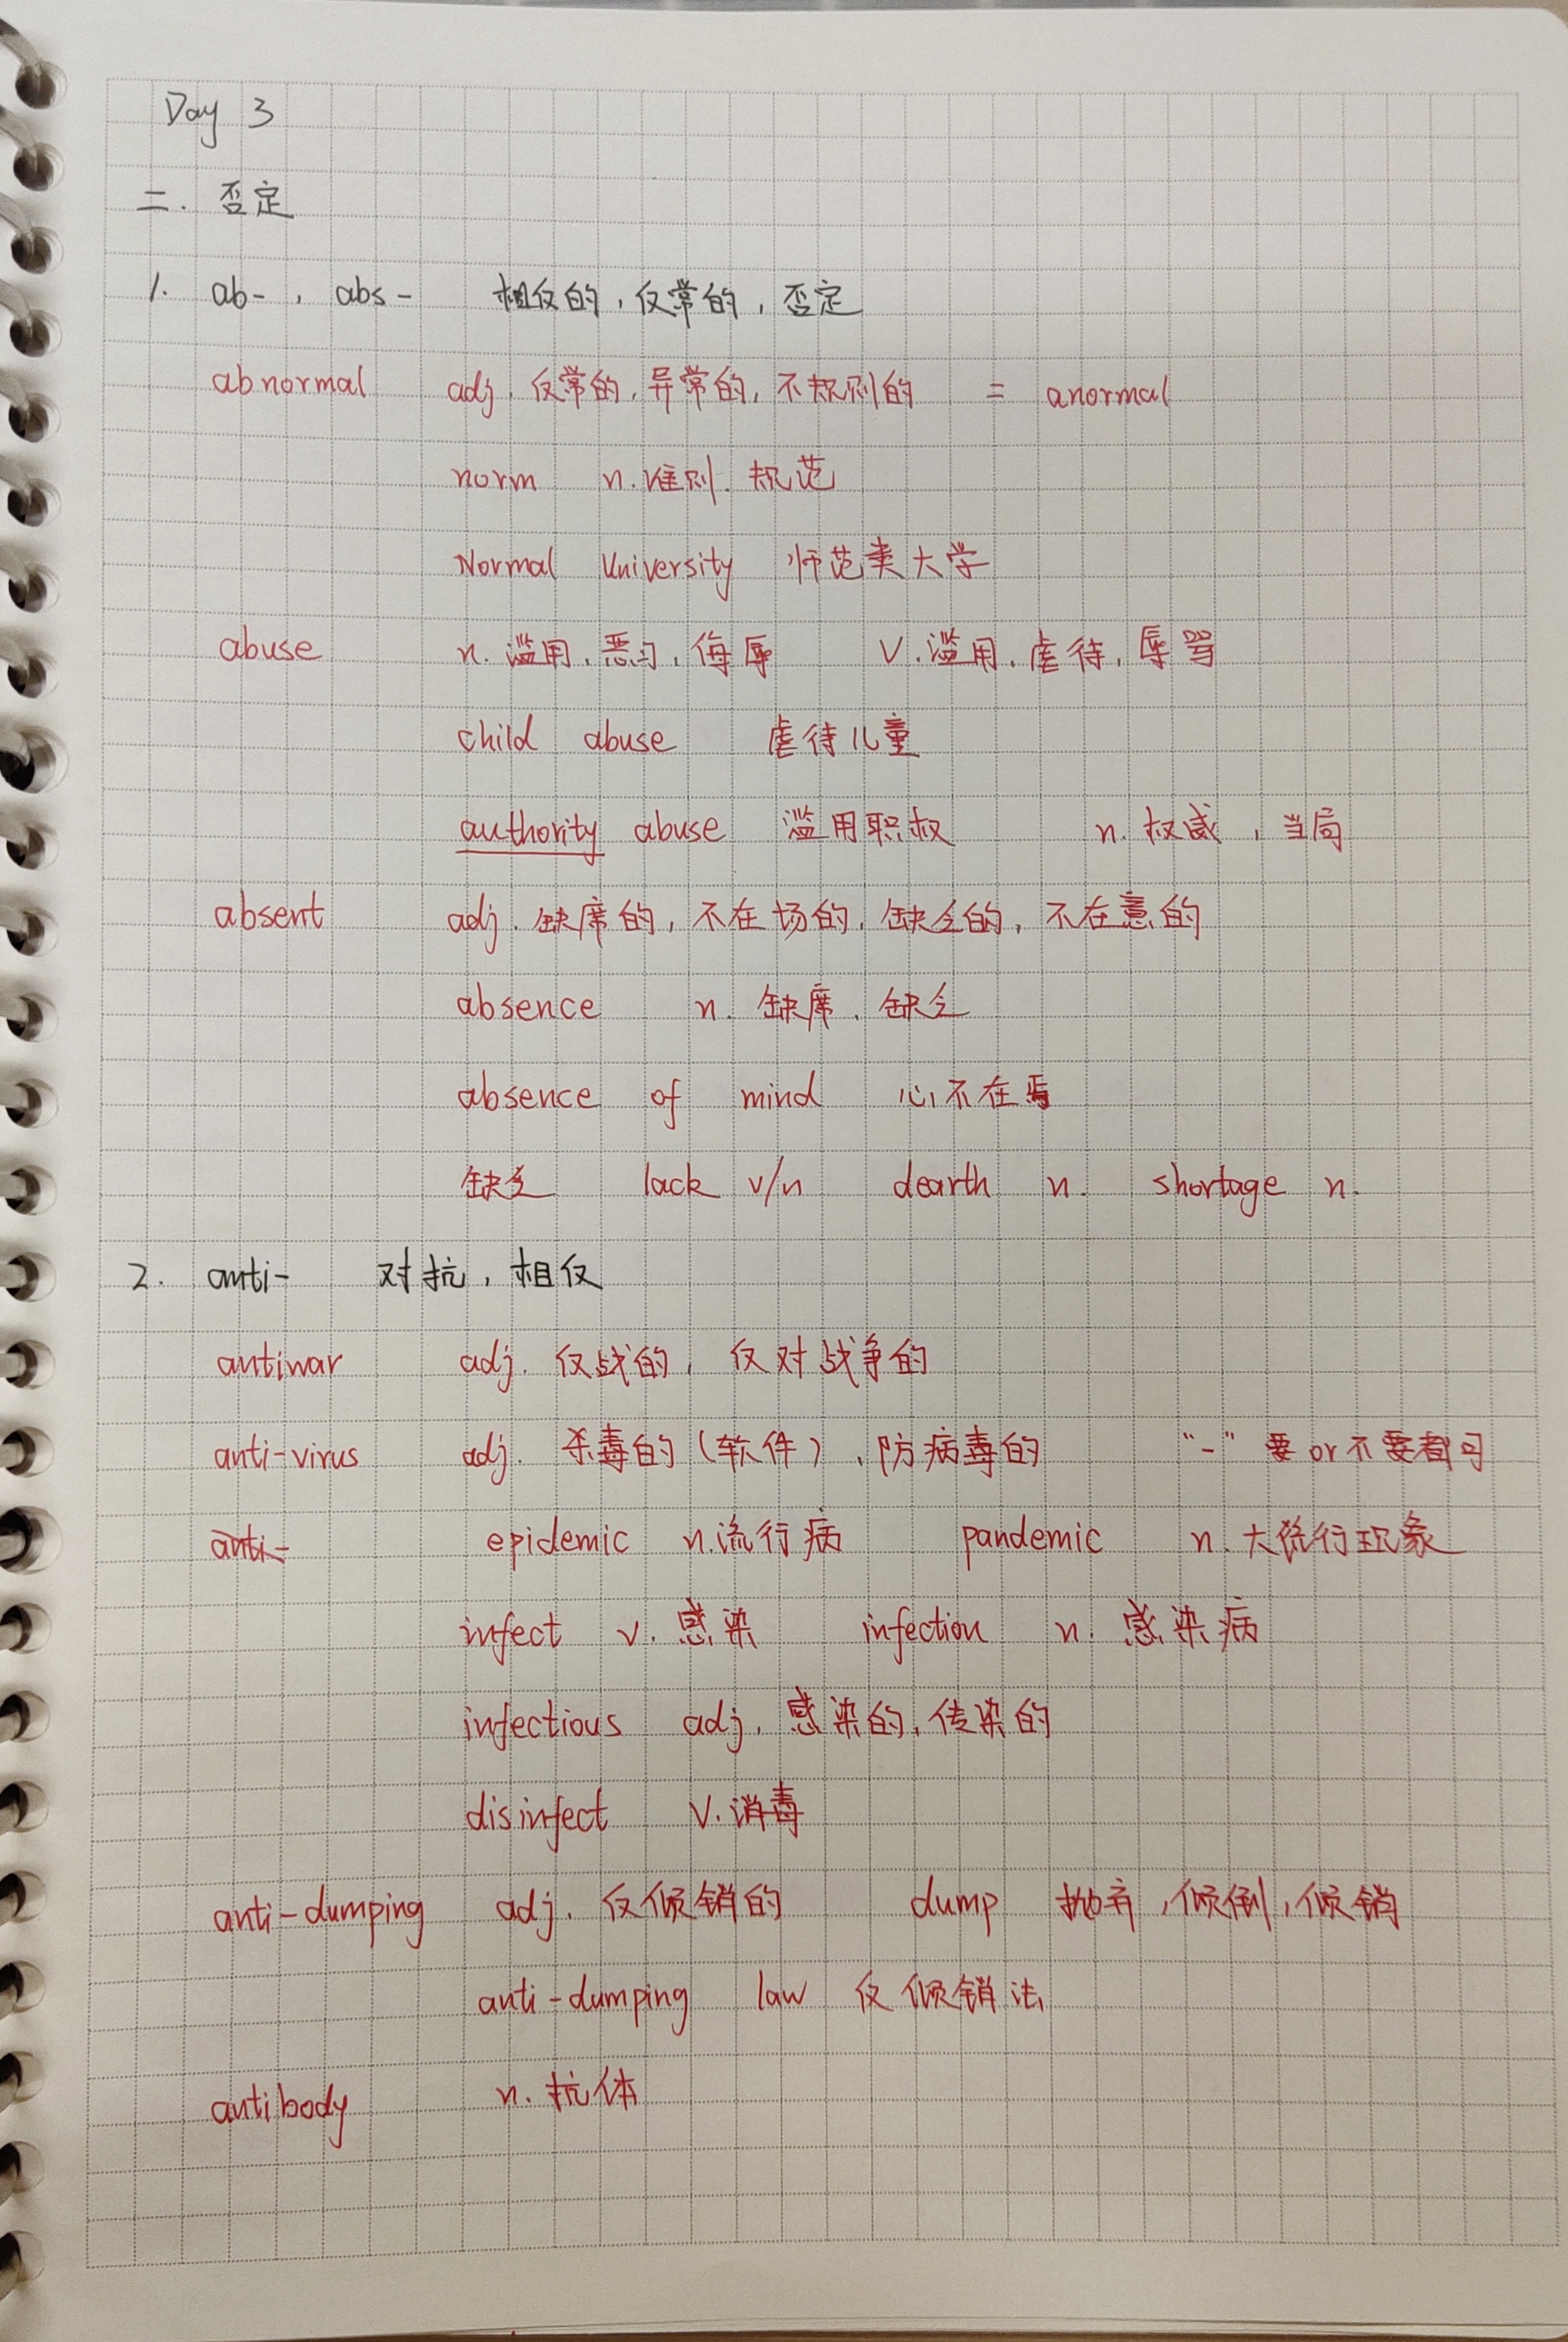 Day 3
二. 否定
1. ab-, abs- 相反的, 反常的, 否定
abnormal adj. 反常的, 异常的, 不规则的 = anormal
norm n. 准则. 规范
Normal University 师范类大学
abuse n. 滥用, 恶习, 侮辱 v. 滥用, 虐待, 辱骂
child abuse 虐待儿童
authority abuse 滥用职权 n. 权威, 当局
absent adj. 缺席的, 不在场的, 缺乏的, 不在意的
absence n. 缺席, 缺乏
absence of mind 心不在焉
缺乏 lack v/n dearth n. shortage n.
2. anti- 对抗, 相反
antiwar adj. 反战的, 反对战争的
anti-virus adj. 杀毒的(软件), 防病毒的 "-" 要 or 不要都可
anti- epidemic n. 流行病 pandemic n. 大流行现象
infect v. 感染 infection n. 感染病
infectious adj. 感染的, 传染的
disinfect v. 消毒
anti-dumping adj. 反倾销的 dump 抛弃, 倾倒, 倾销
anti-dumping law 反倾销法
antibody n. 抗体